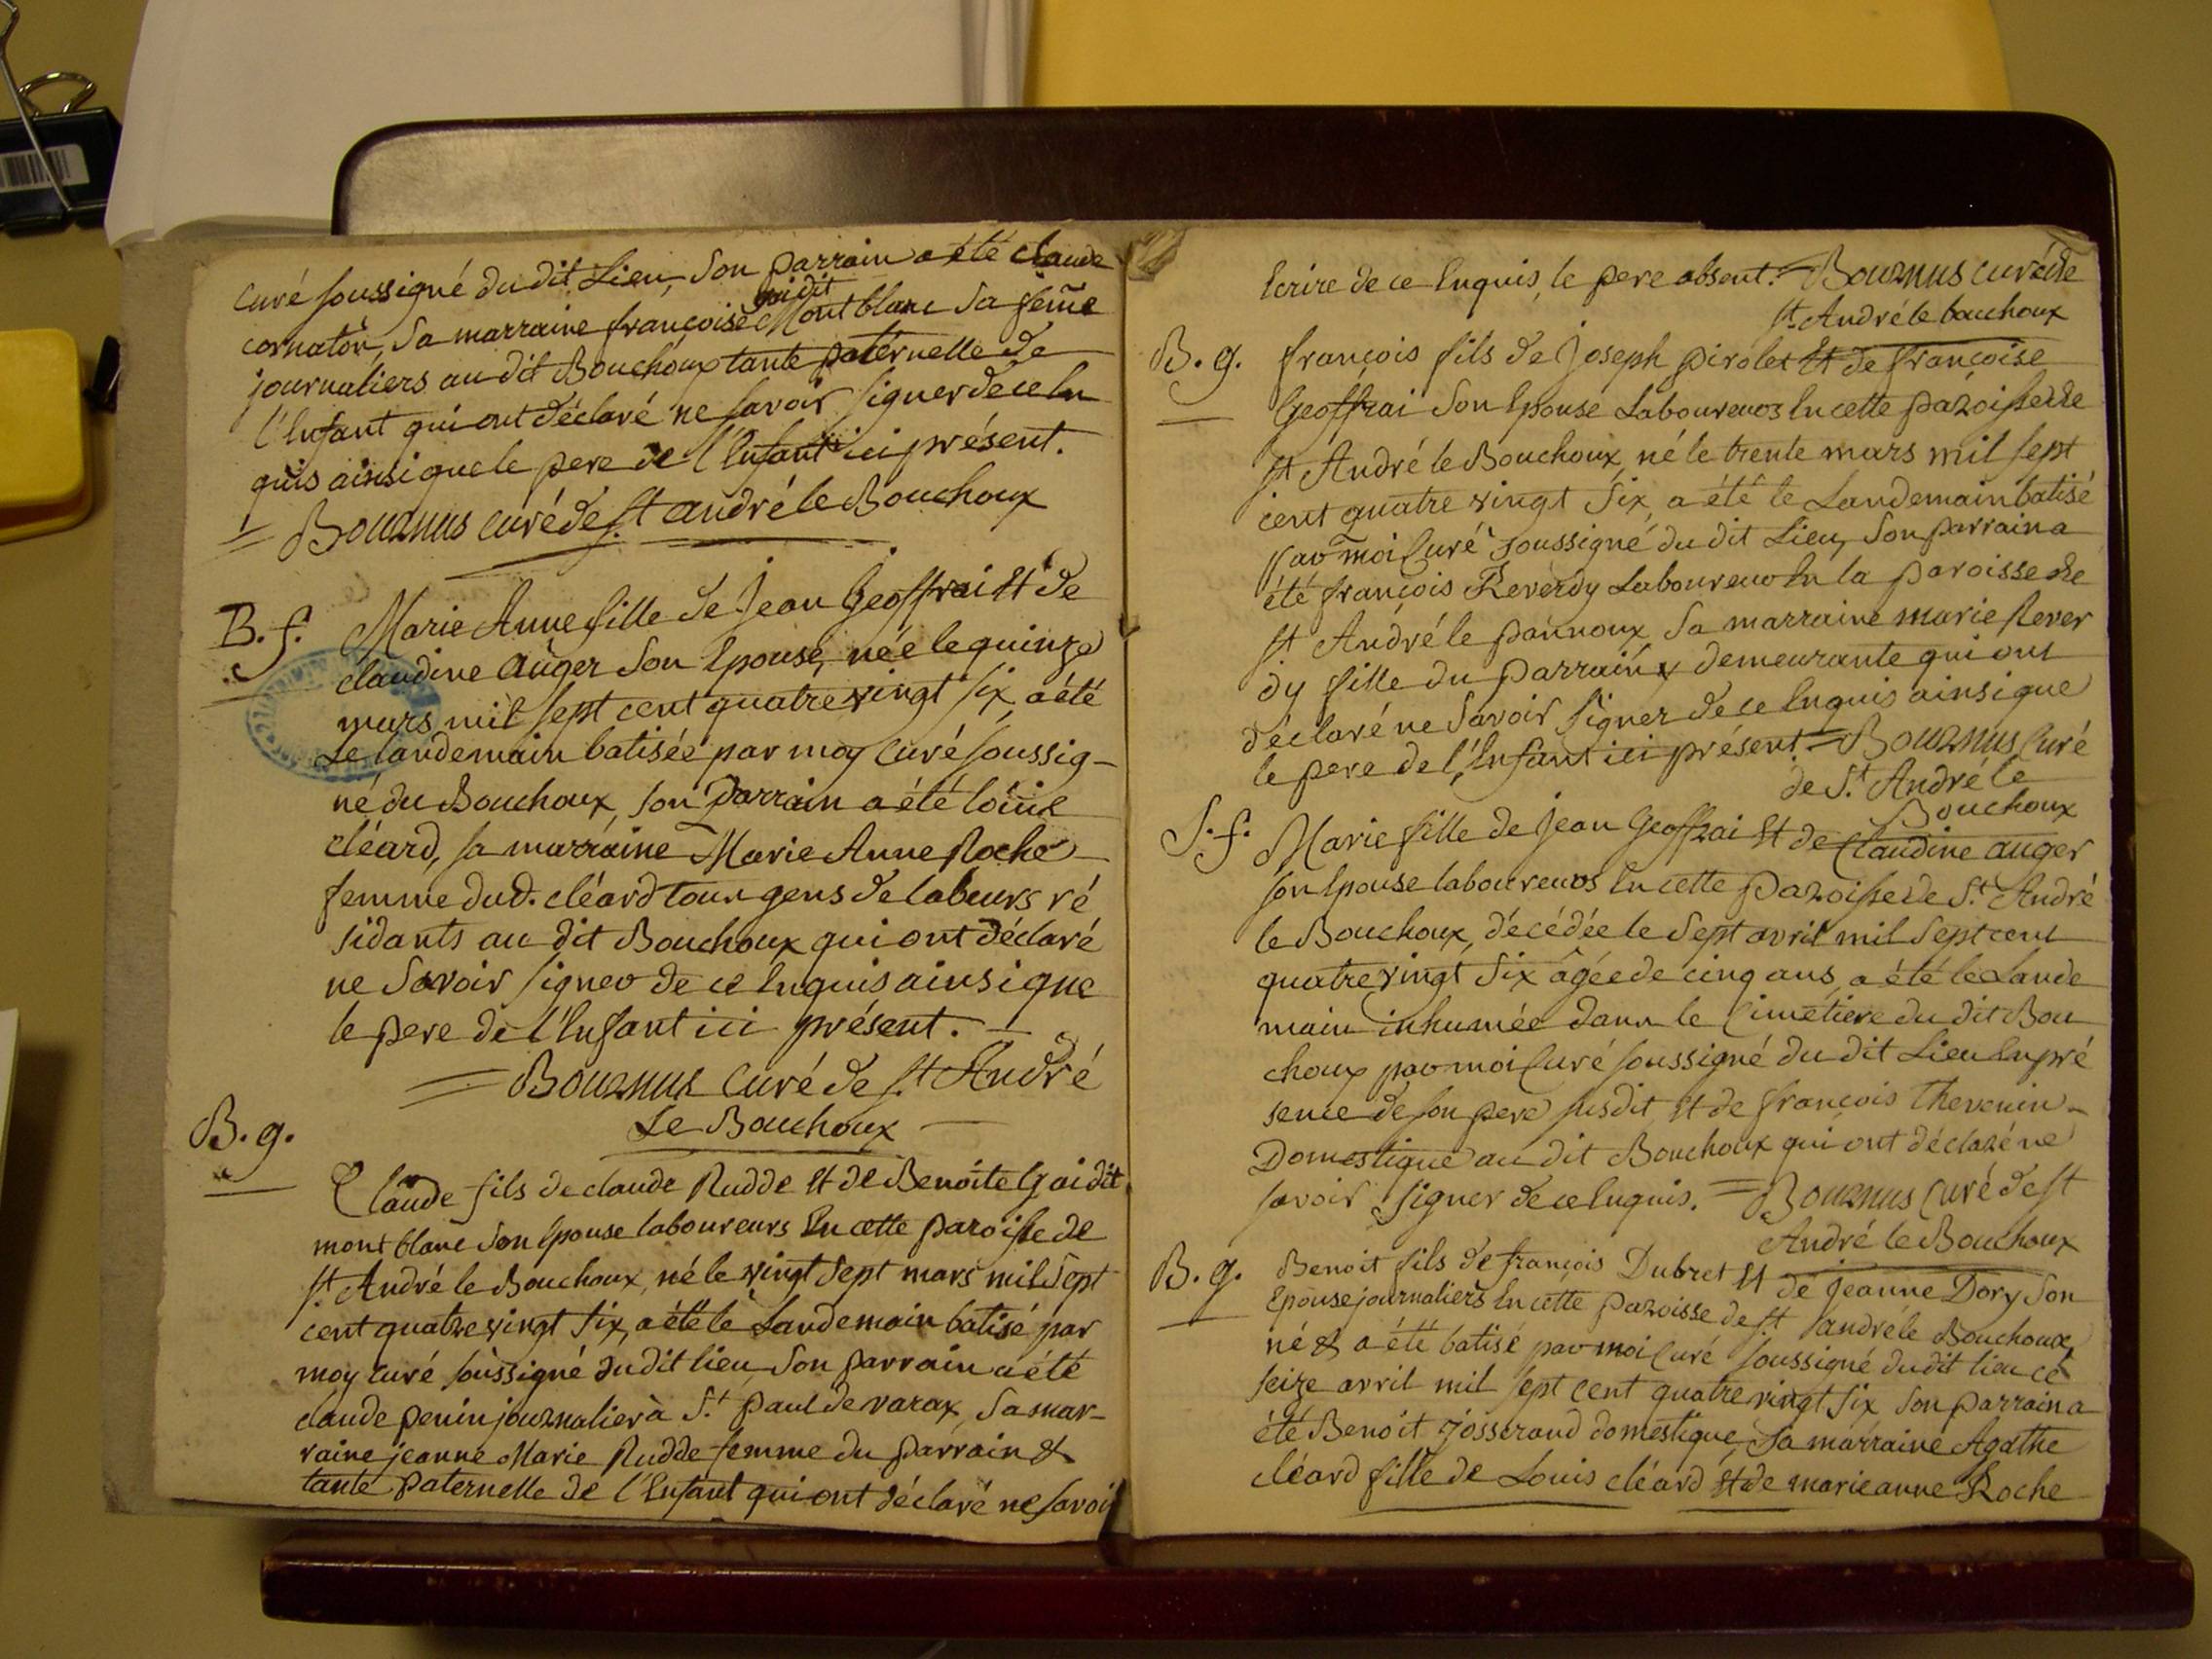 curé soussigné du dit Lieu, son parrain a été claude
cornaton, sa marraine françoise gaidit Montblanc sa feme
journaliers au dit Bouchoux tante paternelle de
l'Enfant qui ont déclaré ne savoir signer de ce En
quis ainsi que le pere de l'Enfant ici présent.
= Bournus curé de st andré le Bouchoux
B. f. Marie Anne fille de Jean Geoffrai Et de
claudine auger son Epouse, née le quinze
mars mil sept cent quatre vingt six, a été
Le landemain batisée par moy curé soussig-
né du Bouchoux, son parrain a été loüis
cléard, sa marraine Marie Anne Roche
femme dud. cléard tous gens de labeurs ré
sidants au dit Bouchoux qui ont déclaré
ne Savoir signer de ce Enquis ainsi que
le pere de l'Enfant ici présent. -
= Bournus curé de st André
Le Bouchoux
B. g.
Claude fils de claude Rudde Et de Benoite Gaidit
montblanc son Epouse laboureurs En cette paroisse de
st André le Bouchoux, né le vingt sept mars mil Sept
cent quatre vingt six, a été le Landemain batisé par
moy curé soussigné dudit lieu, son parrain a été
claude penin journalier à St. paul de varax, sa mar-
raine jeanne Marie Rudde femme du parrain &
tante paternelle de l'Enfant qui ont déclaré ne savoir
Ecrire de ce Enquis, le pere absent. = Bournus curé de
st. André le bouchoux
B. g. françois fils de Joseph pirolet Et de françoise
Geoffrai son Epouse Laboureurs En cette paroisse de
st André le Bouchoux, né le trente mars mil sept
cent quatre vingt six, a été le Landemain batisé
par moi Curé soussigné du dit Lieu, son parrain a
été françois Reverdy Laboureur En la paroisse de
st André le pannoux, sa marraine marie Rever
dy fille du parrain y demeurante qui ont
déclaré ne savoir signer de ce Enquis ainsi que
le pere de l'Enfant ici présent. = Bournus Curé
de St. André le
Bouchoux
S. f. Marie fille de Jean Geoffrai Et de Claudine auger
son Epouse laboureurs En cette paroisse de St. André
le Bouchoux, décédée le sept avril mil sept cent
quatre vingt six agée de cinq ans, a été le Lande
main inhumée dans le Cimetiere du dit Bou
choux par moi Curé soussigné du dit Lieu En pré
sence de son pere susdit, Et de françois Thevenin -
Domestique au dit Bouchoux qui ont déclaré ne
savoir signer de ce Enquis. = Bournus Curé de st
André le Bouchoux
B. g. Benoit fils de françois Dubret Et de jeanne Dory son
Epouse journaliers En cette paroisse de st andré le Bouchoux,
né & a été batisé par moi Curé soussigné dudit lieu ce
seize avril mil sept cent quatre vingt six son parrain a
été Benoit josserand domestique, sa marraine Agathe
cléard fille de Louis cléard Et de marie anne Roche